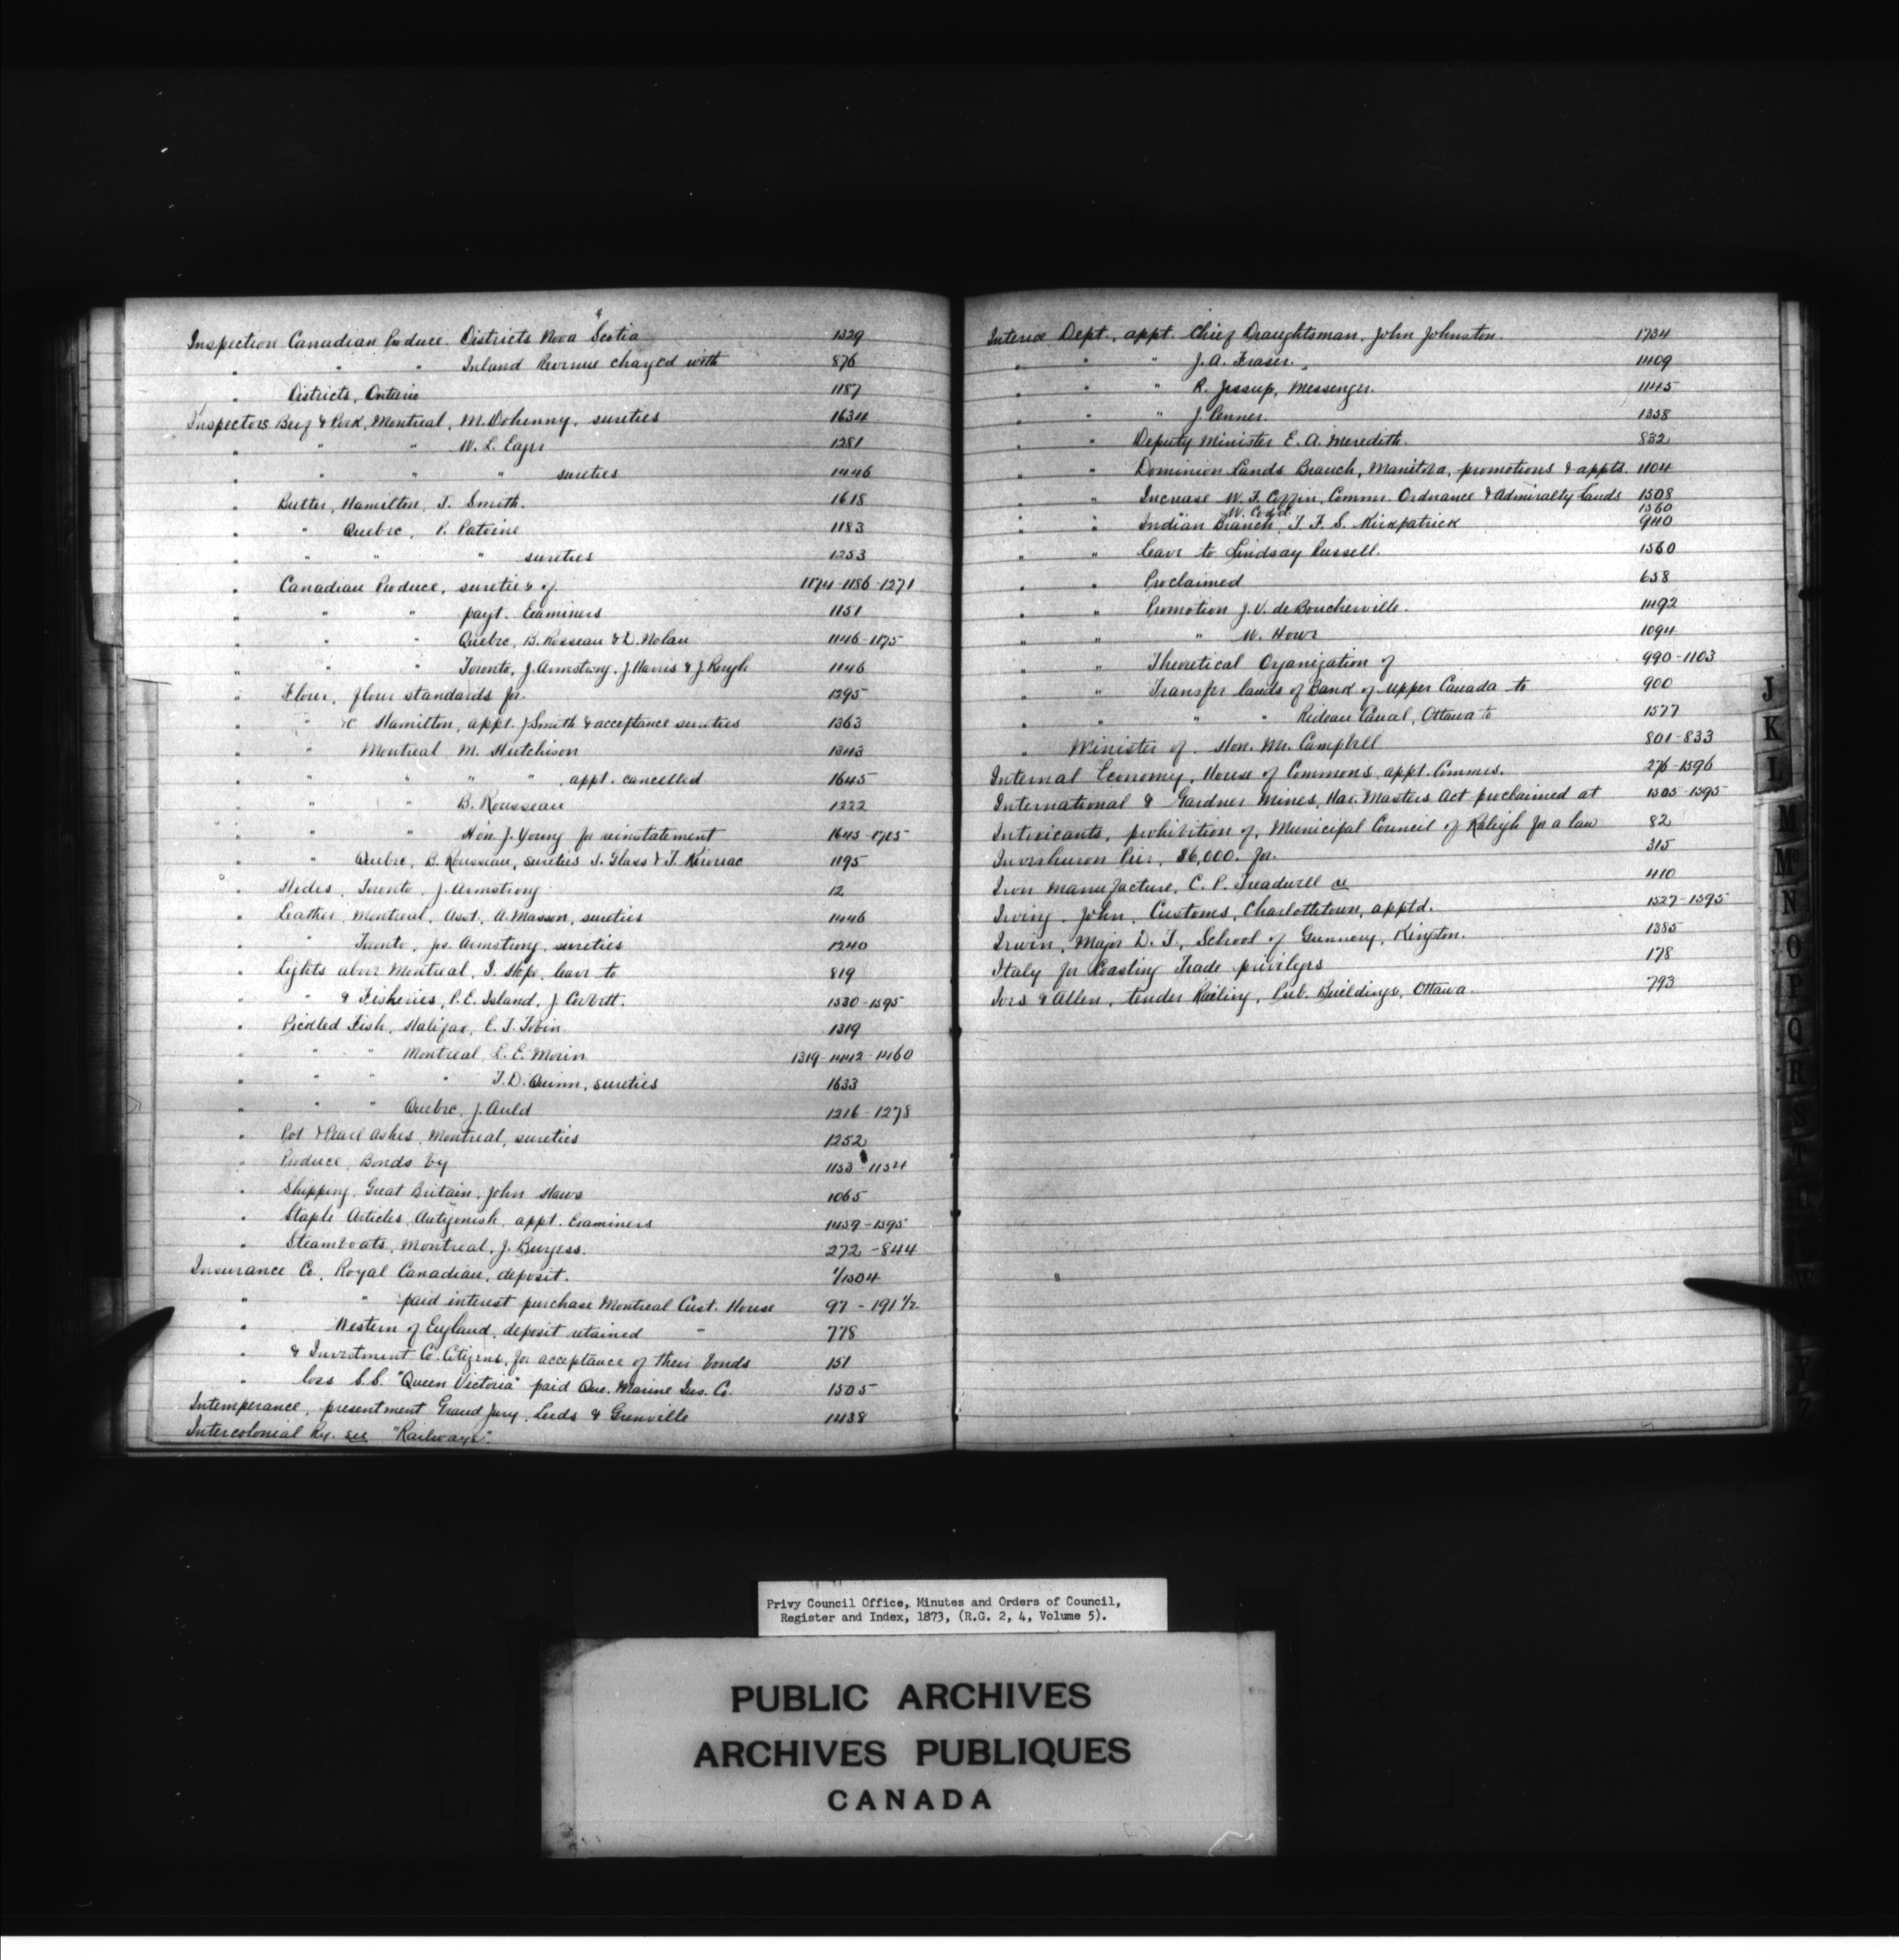 Inspection Canadian Produce. Districts Nova Scotia 1329
" " " Inland Revenue charged with 876
" Districts, Ontario 1187
Inspectors Beef & Pork, Montreal, M. Dohenny, sureties 1634
" " " W. L. Eager 1281
" " " " sureties 1446
" Butter, Hamilton, J. Smith. 1618
" " Quebec, P. Patoine 1183
" " " " sureties 1253
" Canadian Produce, sureties of 1174-1186-1271
" " " payt. Examiners 1151
" " " Quebec, B. Rosseau & D. Nolan 1146-1175
" " " Toronto, J. Armstrong, J. Harris & J. Keogh 1146
" Flour, flour standards for. 1295
" " Hamilton, appt. J. Smith & acceptance sureties 1363
" " Montreal M. Hutchison 1343
" " " " " appt. cancelled 1645
" " " B. Rousseau 1222
" " " Hon. J. Young for reinstatement 1643-1705
" " Quebec, B. Rousseau, sureties J. Glass & T. 1195
" Hides, Toronto, J. Armstrong 12
" Leather, Montreal, Asst. A. Masson, sureties 1446
" " Toronto, Jos. Armstrong, sureties 1240
" Lights above Montreal, J. Hope, leave to 819
" " & Fisheries, P.E. Island, J. Corbett. 1530-1595
" Pickled Fish, Halifax, E. J. Tobin 1319
" " " Montreal, L. E. Morin 1319-1442-1460
" " " " J. D. Quinn, sureties 1633
" " " Quebec, J. Auld 1216-1278
" Pot & Pearl Ashes, Montreal, sureties 1252
" Produce, Bonds by 1153-1154
" Shipping, Great Britain, John Haws 1065
" Staple Articles, Antigonish, appt. Examiners 1459-1595
" Steamboats, Montreal, J. Burgess. 272-844
Insurance Co. Royal Canadian, deposit. 1/1504
" " paid interest purchase Montreal Cust. House 97-191½
" Western of England, deposit retained 778
" & Investment Co. Citizens, for acceptance of their bonds 151
" loss S.S. "Queen Victoria" paid Que. Marine Ins. Co. 1505
Intemperance, presentment Grand Jury, Leeds & Grenville 1438
Intercolonial Ry. see "Railways".
Interior Dept., appt. Chief Draughtsman, John Johnston. 1734
" " " J. A. Fraser. 1409
" " " R. Jessup, Messenger. 1145
" " " J. Penner. 1358
" " Deputy Minister E. A. Meredith. 832
" " Dominion Lands Branch, Manitoba, promotions & appts. 1104
" " Increase W. F. Coffin, Commr. Ordnance & Admiralty lands 1508
" " " W. Codd. 1560
" " Indian Branch, J. F. S. Kirkpatrick 940
" " leave to Lindsay Russell. 1560
" " Proclaimed 658
" " Promotion J. V. de Boucherville. 1492
" " " W. Howe 1094
" " Theoretical Organization of 990-1103
" " Transfer lands of Bank of Upper Canada to 900
" " " " Rideau Canal, Ottawa to 1577
" Minister of. Hon. Mr. Campbell 801-833
Internal Economy, House of Commons, appt. Commrs. 276-1596
International & Gardner Mines, Har. Masters Act proclaimed at 1505-1595
Intoxicants, prohibition of, Municipal Council of Raleigh for a law 82
Inverhuron Pier, $6,000. for. 315
Iron Manufacture, C. P. Treadwell re 410
Irving, John, Customs, Charlottetown, apptd. 1527-1595
Irwin, Major D. T., School of Gunnery, Kingston. 1385
Italy for Coasting Trade privileges 178
Ives & Allen, tender Railing, Pub. Buildings, Ottawa. 793
J
K
L
M
Mc
N
O
P
Q
R
S
T
Privy Council Office, Minutes and Orders of Council,
Register and Index, 1873, (R.G. 2, 4, Volume 5).
PUBLIC ARCHIVES
ARCHIVES PUBLIQUES
CANADA